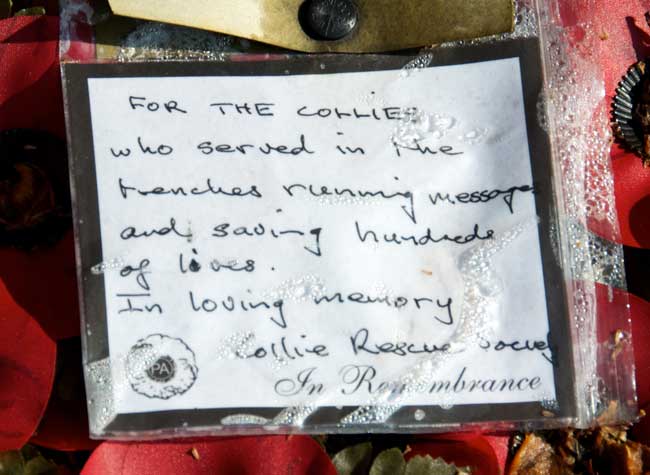 FOR THE COLLIES
who served in the
trenches running messages
and saving hundreds
of lives.
In loving memory
Collie Rescue Society
PA
In Remembrance